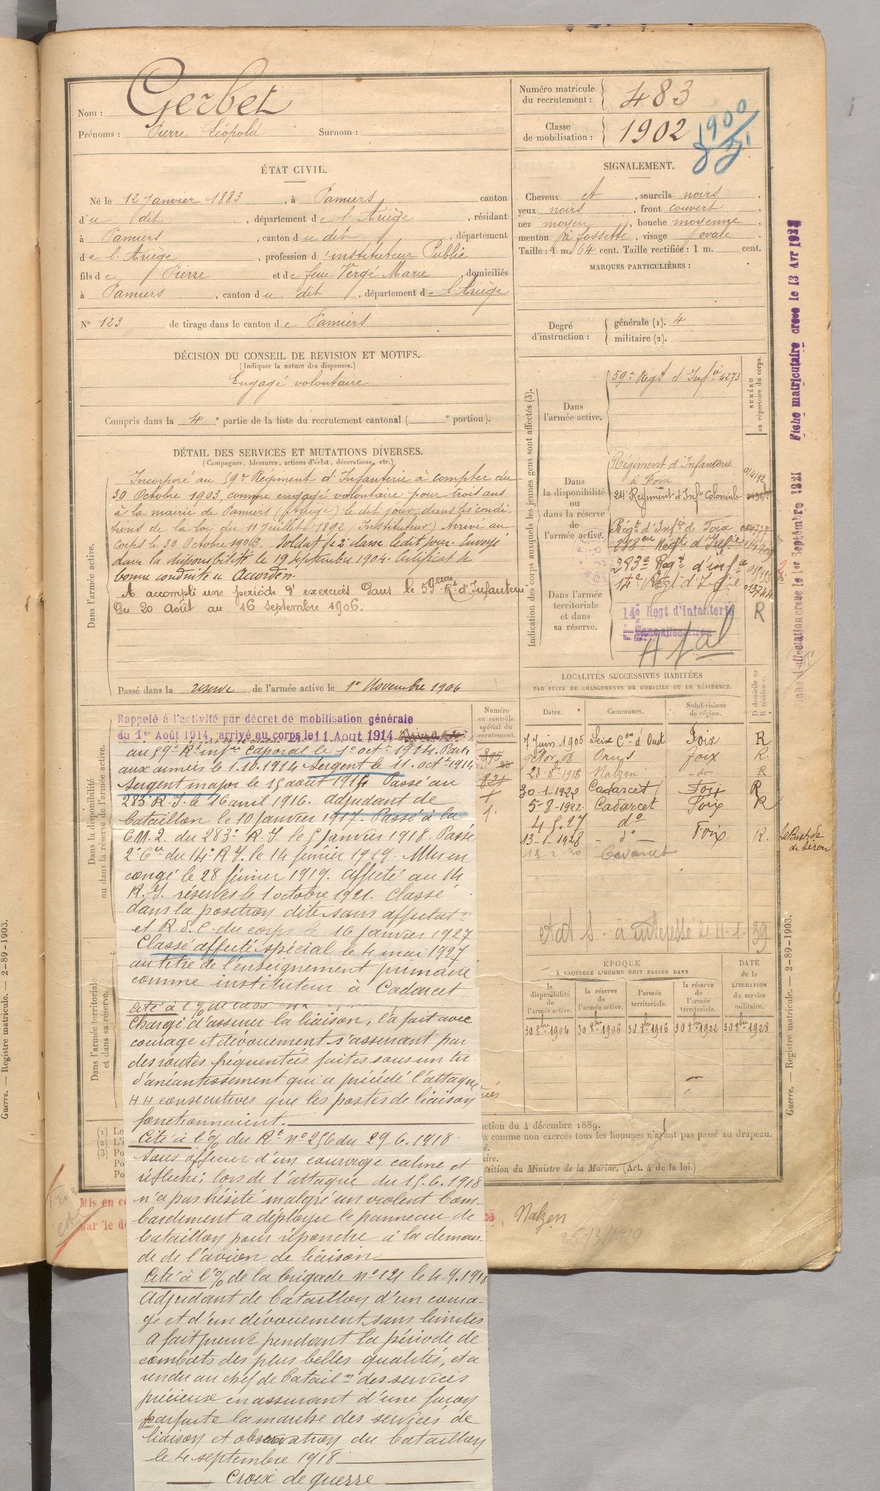 Nom : Gerbet
Prénoms : Pierre Léopold Surnom :
Numéro matricule du recrutement : 483
Classe de mobilisation : 1902
1900
ÉTAT CIVIL.
Né le 12 janvier 1883, à Pamiers, canton
du dit, département de l'Ariège, résidant
à Pamiers, canton du dit, département
de l'Ariège, profession d'instituteur Public
fils de Pierre et de feue Vergé Marie, domiciliés
à Pamiers, canton du dit, département de l'Ariège
N° 123 de tirage dans le canton de Pamiers
SIGNALEMENT.
Cheveux et, sourcils noirs
yeux noirs, front couvert
nez moyen, bouche moyenne
menton à fossette, visage ovale
Taille : 1 m. 64 cent. Taille rectifiée : 1 m. cent.
MARQUES PARTICULIÈRES :
Degré d'instruction : générale (1). 4
militaire (2).
DÉCISION DU CONSEIL DE REVISION ET MOTIFS.
(Indiquer la nature des dispenses.)
Engagé volontaire
Compris dans la 4e partie de la liste du recrutement cantonal ( e portion).
DÉTAIL DES SERVICES ET MUTATIONS DIVERSES.
(Campagnes, blessures, actions d'éclat, décorations, etc.)
Dans l'armée active.
Incorporé au 59e Régiment d'Infanterie à compter du
30 Octobre 1903, comme engagé volontaire pour trois ans
à la mairie de Pamiers (Ariège) le dit jour, dans les condi
tions de la loi du 11 Juillet 1892 (Instituteur) Arrivé au
corps le 30 Octobre 1903. Soldat de 2e classe le dit jour. Envoyé
dans la disponibilité le 19 septembre 1904. Certificat de
bonne conduite « Accordé ».
A accompli une période d'exercices dans le 59ème Rt d'Infanterie
Du 20 août au 16 Septembre 1906.
Passé dans la réserve de l'armée active le 1er Novembre 1906
Indication des corps auxquels les jeunes gens sont affectés (3).
NUMÉRO au répertoire du corps.
Dans l'armée active.
59e Régt d'Infie 4273
Dans la disponibilité ou dans la réserve de l'armée active.
Régiment d'Infanterie
à Foix
24 Régiment d'Infie Coloniale
Régt d'Infie de Foix
283e Régt d'infie
Dans l'armée territoriale et dans sa réserve.
14e Régt d'Infie
14e Regt d'Infanterie
Sans affectation
R
Fiche matriculaire creee le 13 Avr
affectation creee le 1er Septembre 1921
LOCALITÉS SUCCESSIVES HABITÉES
PAR SUITE DE CHANGEMENTS DE DOMICILE OU DE RÉSIDENCE.
Dates. Communes. Subdivisions de région. D domicile ou R résidence.
7 Juin 1905 Seix Con d'Oust Foix R
Foix R
20-8-1918 Nalzen do R
30-1-1922 Cadarcet Foix R
5-8-1922 Cadarcet Foix R
4-5-27 do
13-1-1928 do Foix R.
La Bastide de Sérou
Cadarcet
ÉPOQUE
À LAQUELLE L'HOMME DOIT PASSER DANS
DATE de la LIBÉRATION du service militaire.
la disponibilité de l'armée active.
la réserve de l'armée active.
l'armée territoriale.
la réserve de l'armée territoriale.
30 8bre 1904 30 8bre 1906 30 8bre 1916 30 8bre 1922 30 8bre 1928
Dans la disponibilité ou dans la réserve de l'armée active.
Dans l'armée territoriale et dans sa réserve.
Numéro au contrôle spécial du recrutement.
Rappelé à l'activité par décret de mobilisation générale
du 1er Août 1914, arrivé au corps le 11 Aout 1914.
au 59e Rt infie Caporal le 1er oct 1914. Parti
aux armées le 1.10.1914 Sergent le 11. oct 1914
Sergent major le 15 août 1915 Passé au
283e R.I. le 16 avril 1916. adjudant de
bataillon le 10 janvier 1917. Passé à la
C M.2. du 283e R.I le 5 janvier 1918. Passé
2e Cie du 14e R.I. le 14 février 1919. Mis en
congé le 28 février 1919. affecté au 14
R.I. réserves le 1 octobre 1921. Classé
dans la position dite sans affectat°
et R.S.C. du corps le 16 janvier 1927
Classé affecté spécial le 4 mai 1927
au titre de l'enseignement primaire
comme instituteur à Cadarcet
Chargé d'assurer la liaison, l'a fait avec
courage et dévouement s'assurant par
des routes fréquentées faites sous un tir
d'anéantissement qui a précédé l'attaque
44 consécutives que les postes de liaison
fonctionnaient.
Cité à l'% du Rt n° 256 du 29.6.1918
Sous officier d'un courage calme et
réfléchi; lors de l'attaque du 15.6.1918
n'a pas hésité malgré un violent bom
bardement a déployer le panneau de
bataillon pour répondre à la deman
de de l'avion de liaison
Cité à l'% de la brigade n° 121 le 4.9.1918
Adjudant de bataillon d'un coura-
ge et d'un dévouement sans limites
A fait preuve pendant la période de
combats des plus belles qualités, et a
rendu au chef de Bataillon des services
précieux en assurant d'une façon
parfaite la marche des services de
liaison et observation du bataillon
le 4 septembre 1918
Croix de guerre
ction du 4 décembre 1889.
comme non exercés tous les hommes n'ayant pas passé au drapeau.
sition du Ministre de la Marine. (Art. 4 de la loi.)
Nalzen
Mis en co
Guerre. — Registre matricule. — 2-89-1903.
Guerre. — Registre matricule. — 2-89-1903.